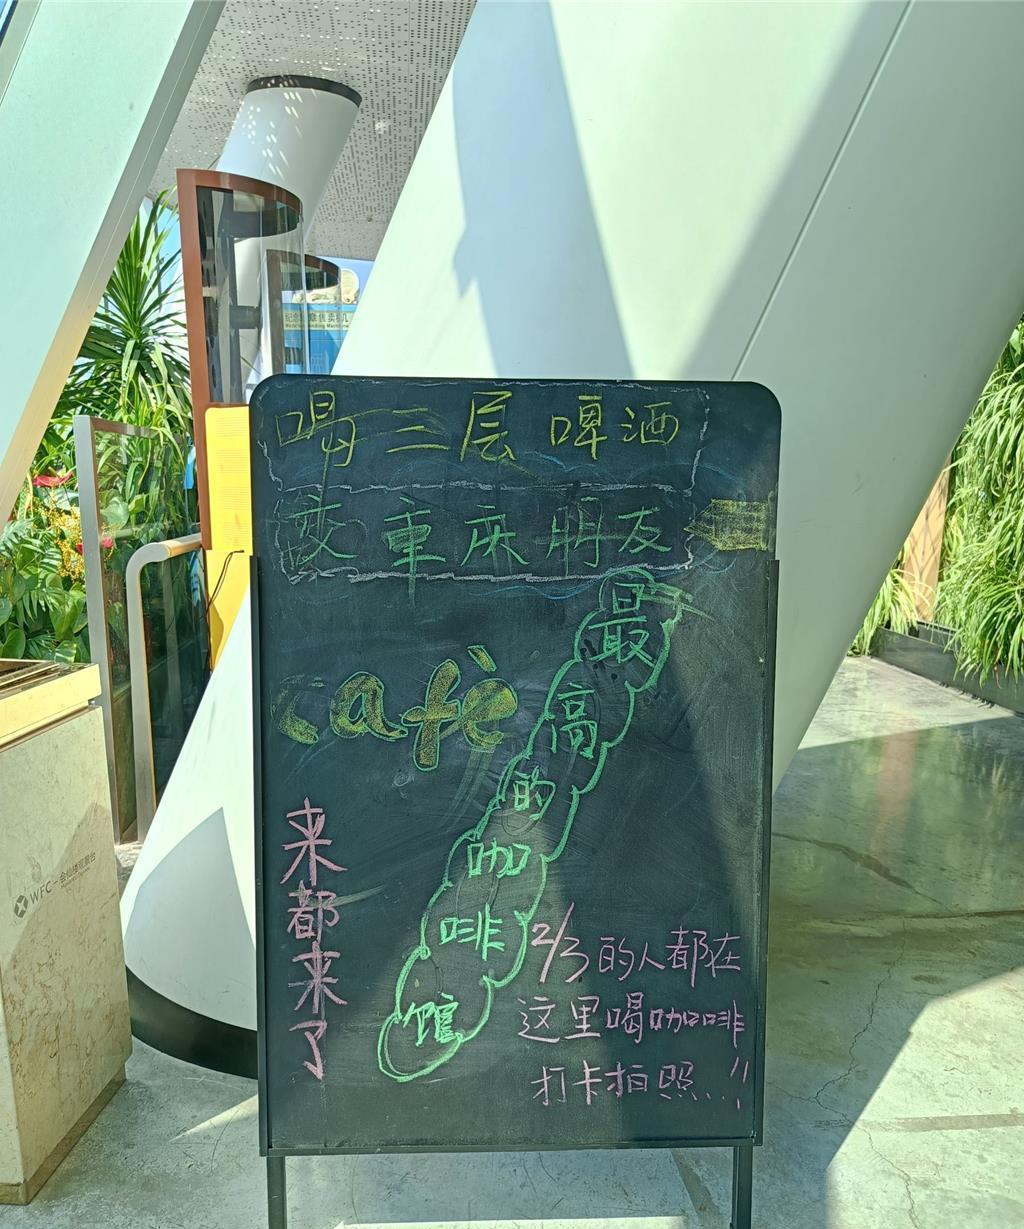 喝三层啤酒
交重庆朋友
café
最高的咖啡馆
来都来了
2/3的人都在
这里喝咖啡
打卡拍照..!!
WFC-会仙楼观景台